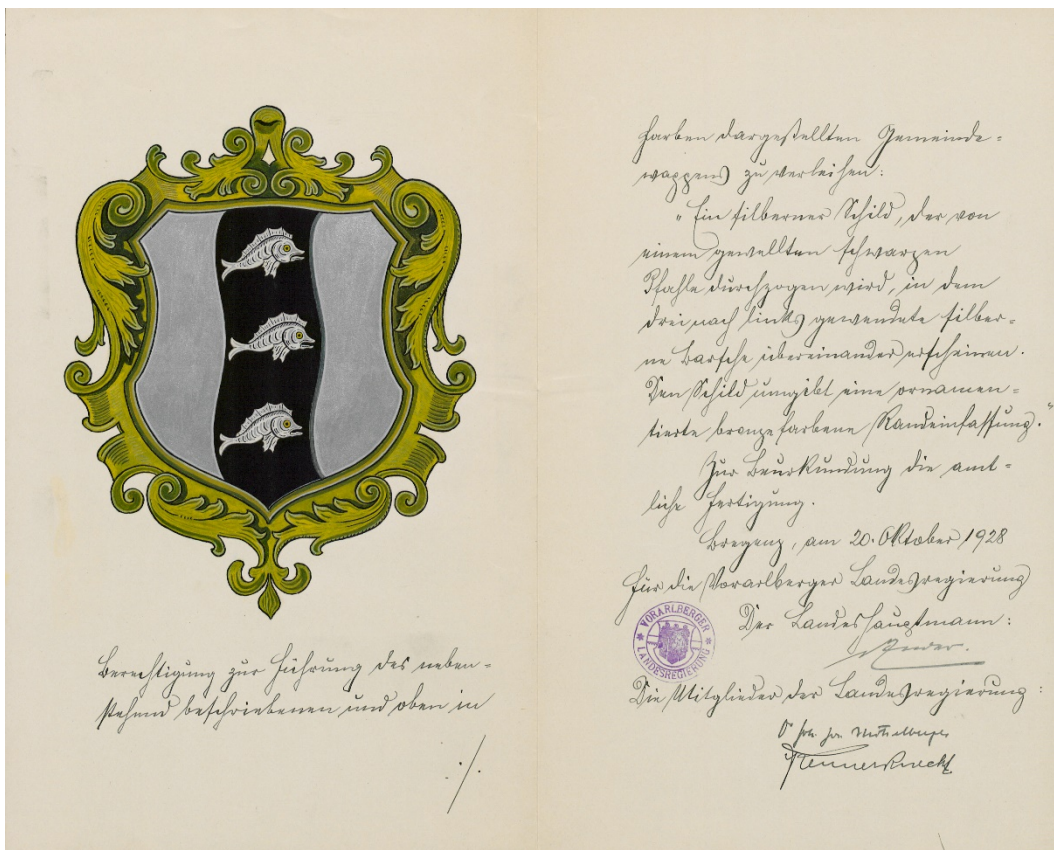 Berechtigung zur Führung des neben-
stehend beschriebenen und oben in
./.
Farben dargestellten Gemeinde-
wappens zu verleihen:
"Ein silberner Schild, der von
einem gewellten schwarzen
Pfahle durchzogen wird, in dem
drei nach links gewendete silber-
ne Barsche übereinander erscheinen.
Den Schild umgibt eine ornamen-
tierte bronzefarbene Randeinfassung."
Zur Beurkundung die amt-
liche Fertigung.
Bregenz, am 20. Oktober 1928
Für die Vorarlberger Landesregierung
Der Landeshauptmann:
VORARLBERGER
LANDESREGIERUNG
Ender.
Die Mitglieder der Landesregierung:
Dr